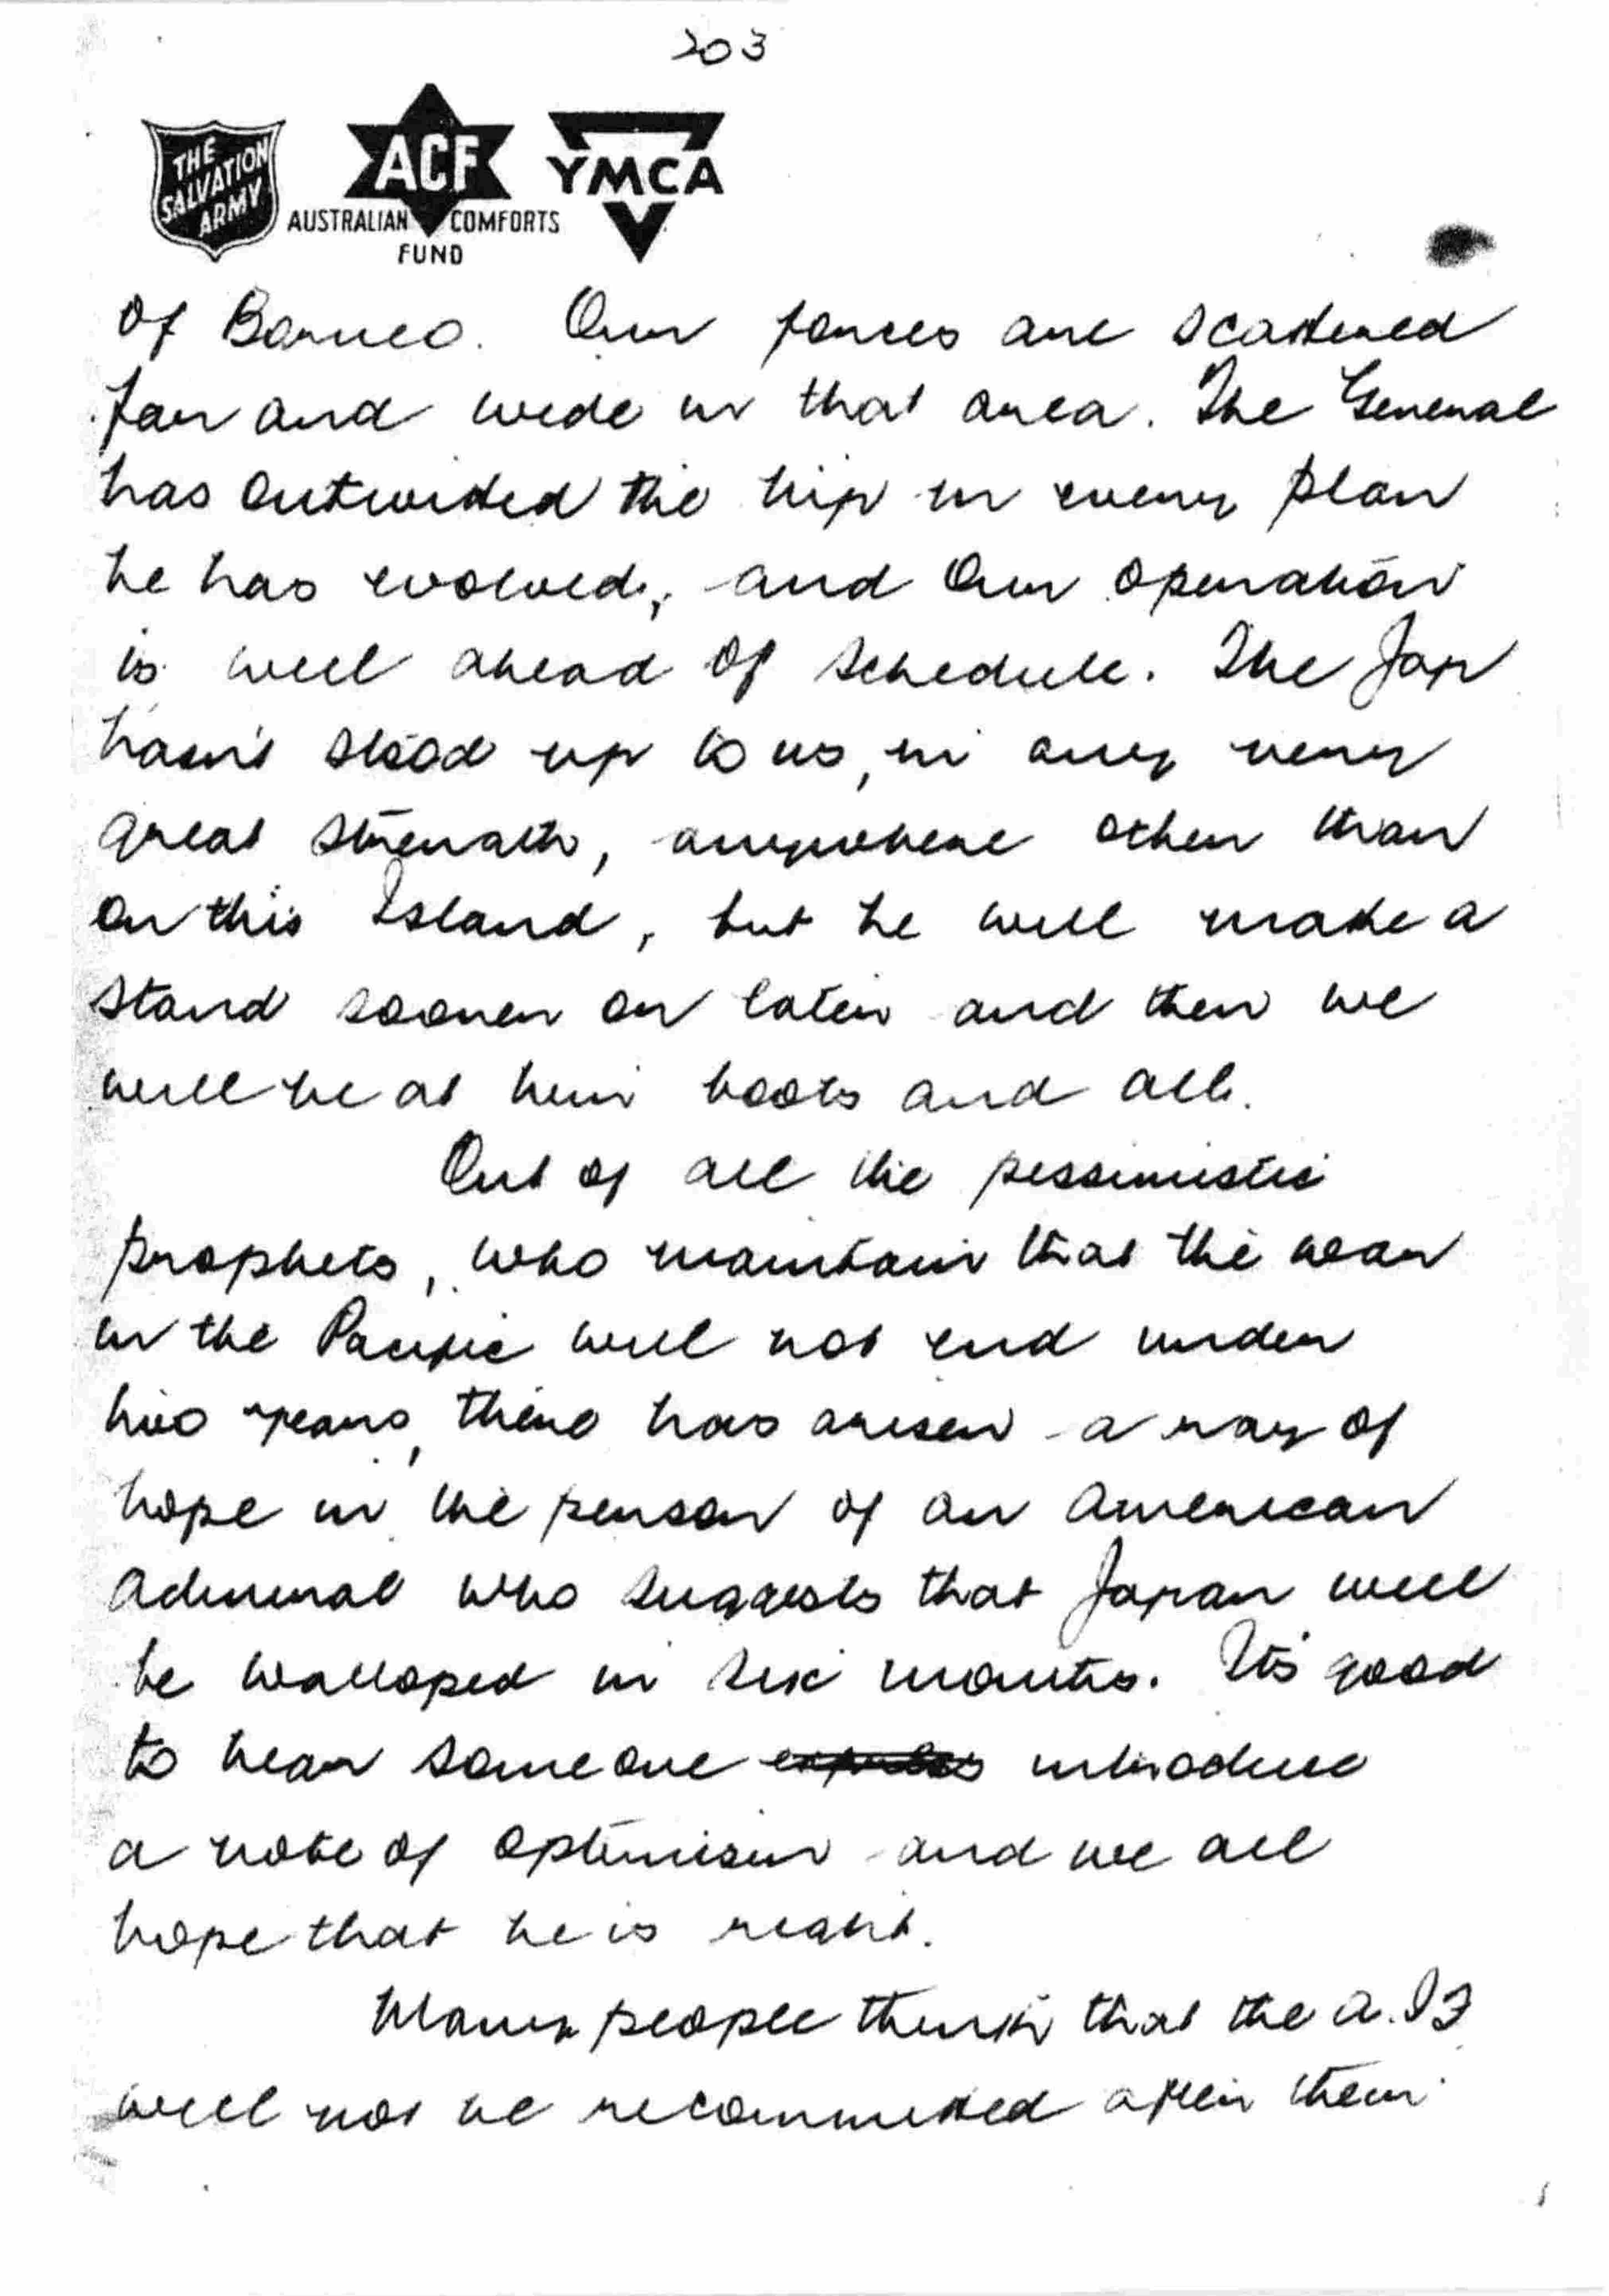 203
THE SALVATION ARMY
ACF
AUSTRALIAN COMFORTS FUND
YMCA
of Borneo. Our forces are scattered
far and wide in that area. The General
has outwitted the Nip in every plan
he has evolved, and our operation
is well ahead of schedule. The Jap
hasn't stood up to us, in any very
great strength, anywhere other than
on this Island, but he will make a
stand sooner or later and then we
will be at him boots and all.
Out of all the pessimistic
prophets, who maintain that the war
in the Pacific will not end under
two years, there has arisen a ray of
hope in the person of an American
Admiral who suggests that Japan will
be walloped in six months. It's good
to hear someone introduce
a note of optimism and we all
hope that he is right.
Many people think that the A.IF
will not be recommitted after them